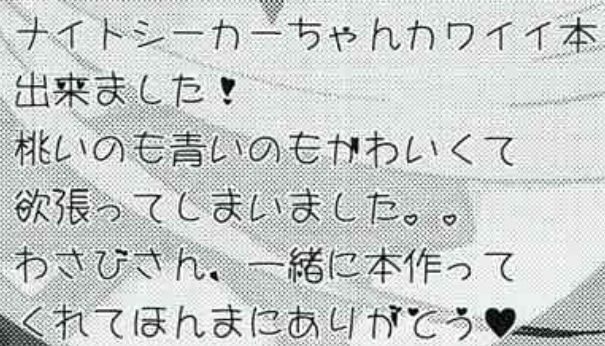 ナイトシーカーちゃんカワイイ本
出来ました!
桃いのも青いのもかわいくて
欲張ってしまいました。。
わさびさん、一緒に本作って
くれてほんまにありがとう♥